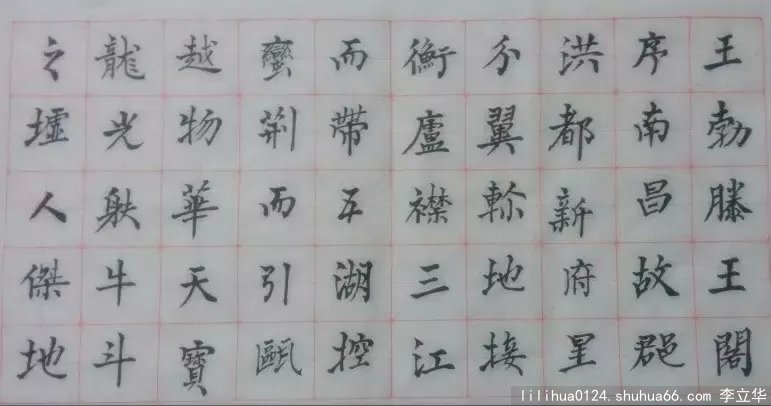 王勃滕王閣
序南昌故郡
洪都新府星
分翼軫地接
衡廬襟三江
而帶五湖控
蠻荊而引甌
越物華天寶
龍光射牛斗
之墟人傑地
lilihua0124.shuhua66.com 李立华